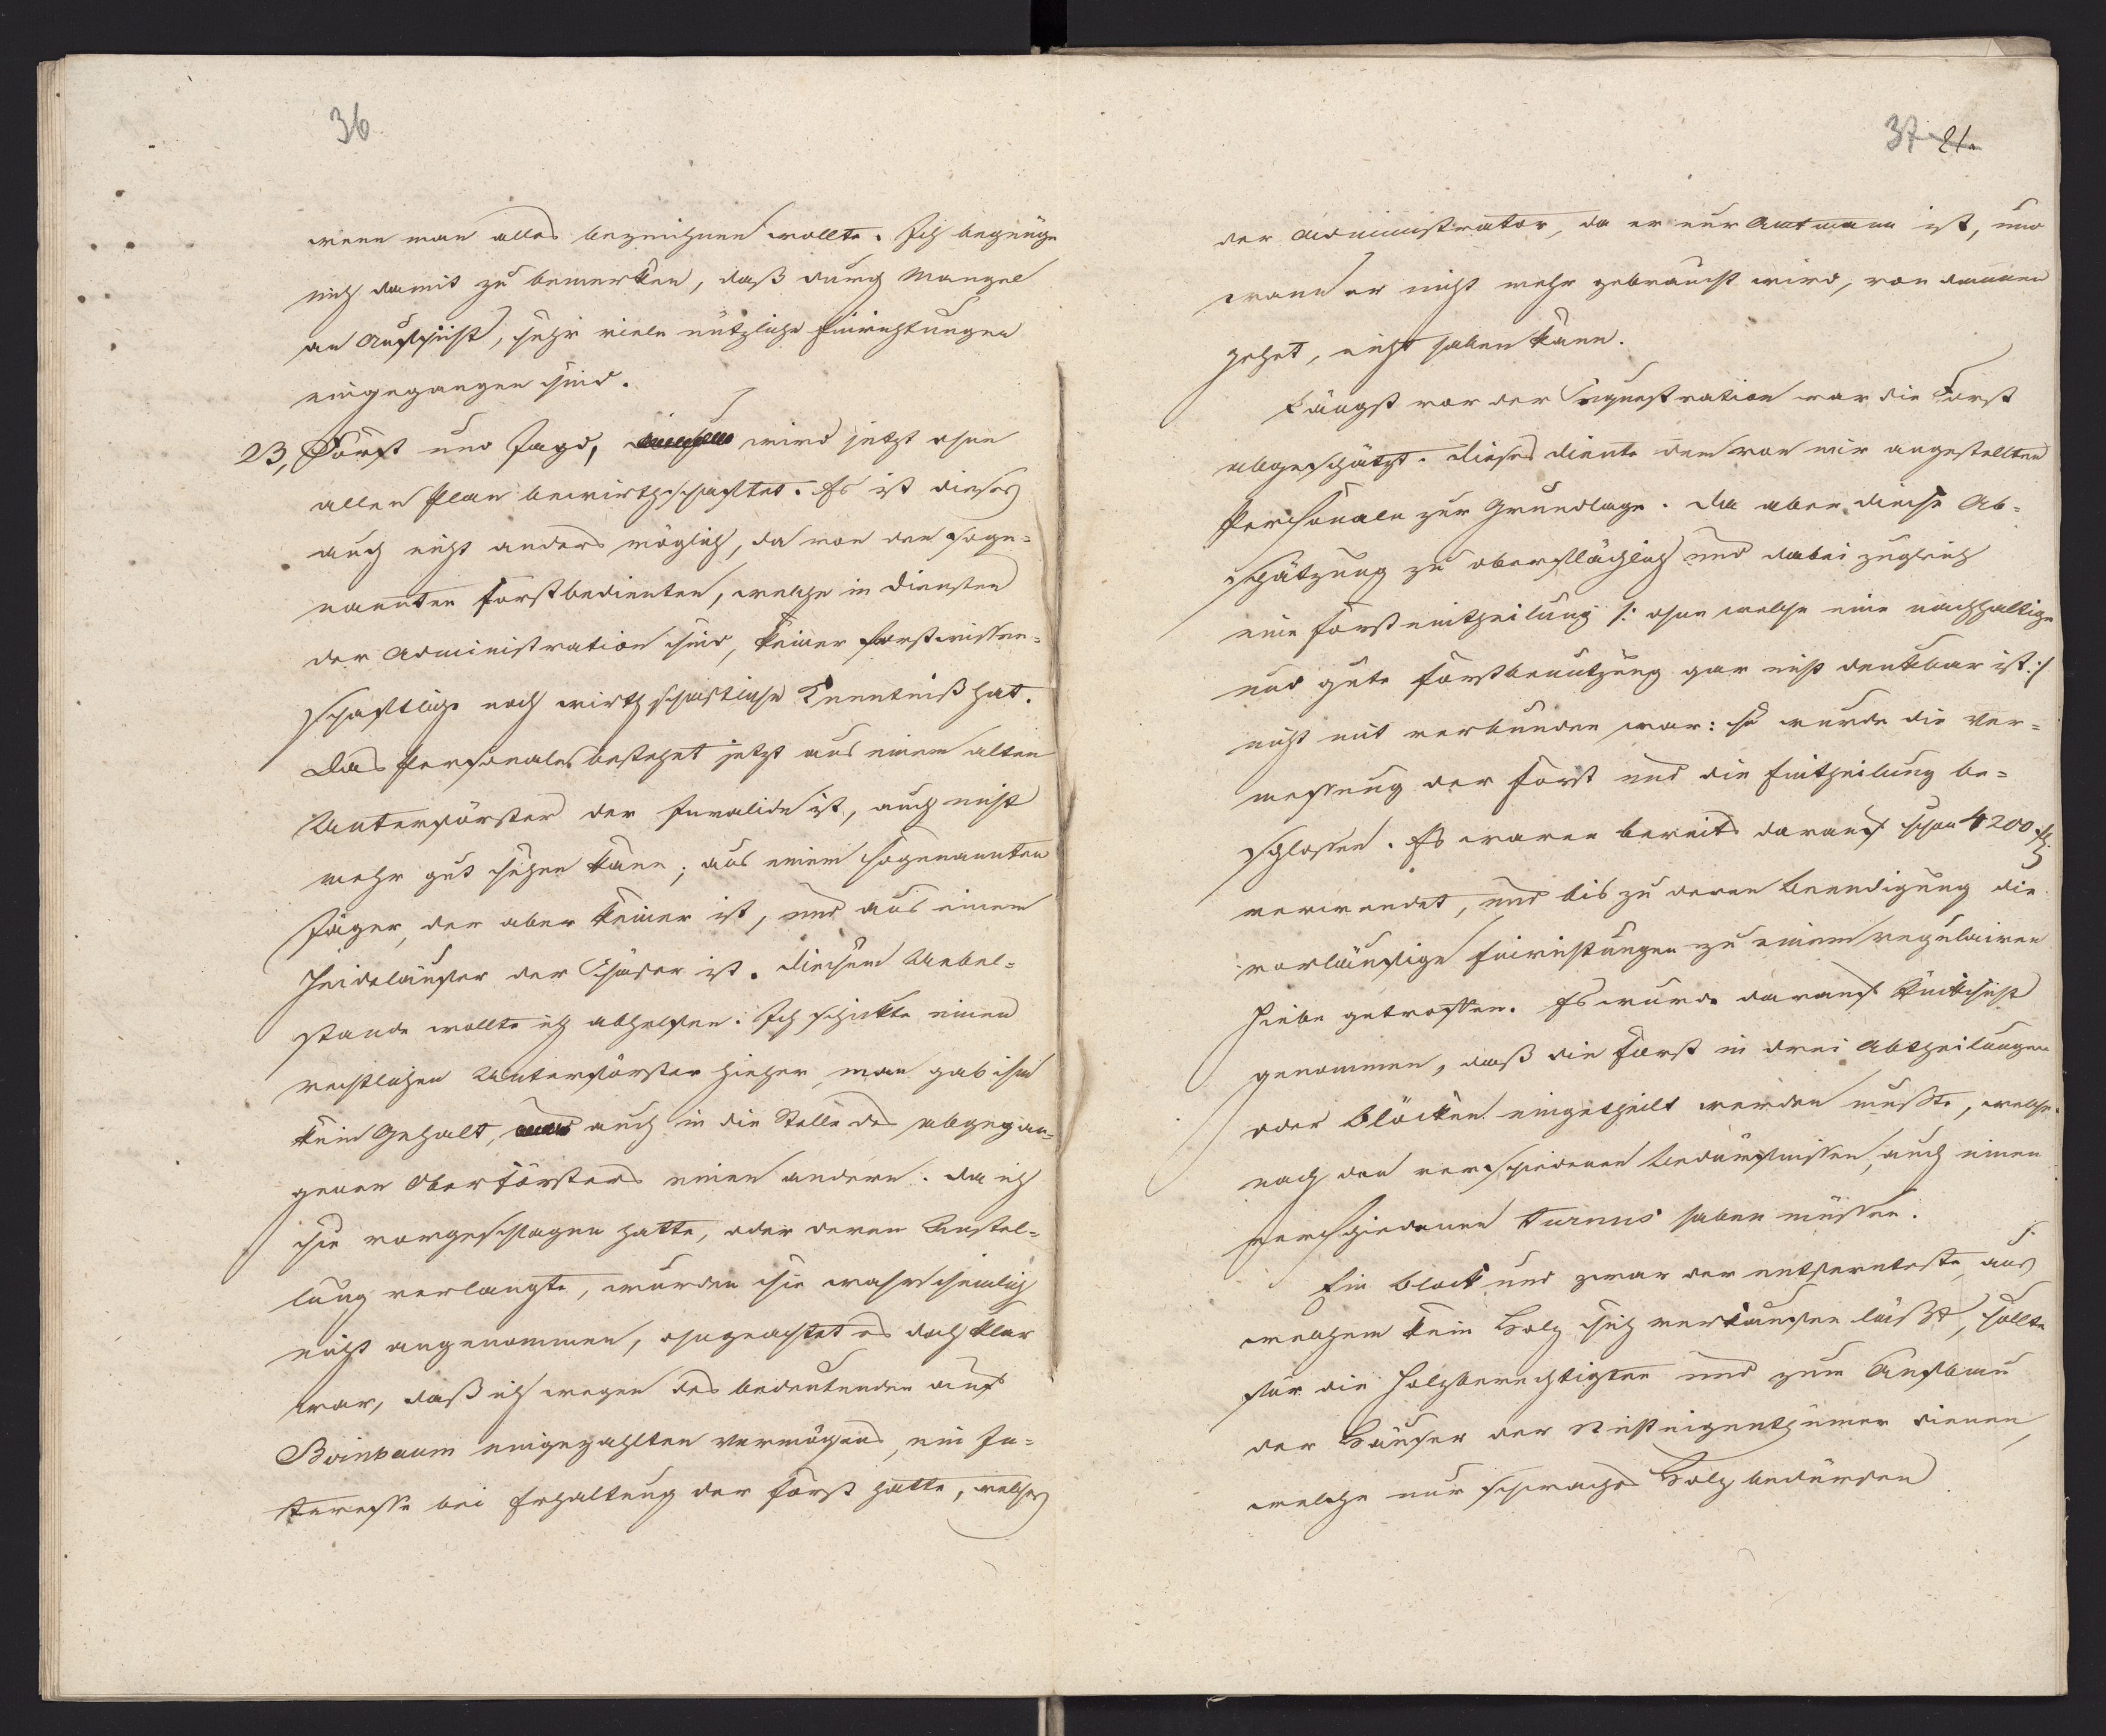 36
wenn man alles bezeichnen wollte. Ich begnüge
mich damit zu bemerken, daß durch Mangel
an Aufsicht, sehr viele nützliche Einrichtungen
eingegangen sind.
23, Forst und Jagd, wird jetzt ohne
allen Plan bewirthschaftet. Es ist dieses
auch nicht anders möglich, da von den soge-
nannten Forstbedienten, welche in Diensten
der Administration sind, keiner forstwissen-
schaftliche noch wirthschaftliche Kenntniß hat.
Das Personale bestehet jetzt aus einem alten
Unterförster der Invalide ist, auch nicht
mehr gut sehen kann; aus einem sogenannten
Jäger, der aber keiner ist, und aus einem
Heideläufer der Schäfer ist. Diesem Uebel-
stande wollte ich abhelfen. Ich schickte einen
rechtlichen Unterförster hieher, man gab ihm
kein Gehalt, auch in die Stelle des abgegan-
genen Oberförsters einen andern. Da ich
sie vorgeschlagen hatte, oder deren Anstel-
lung verlangte, wurden sie wahrscheinlich
nicht angenommen, ohngeachtet es doch klar
war, daß ich wegen des bedeutenden auf
Birnbaum eingezahlten Vermögens, ein In-
teresse bei Erhaltung der Forst hatte, welches
37 21.
der Administrator, da er nur Amtmann ist, und
wenn er nicht mehr gebraucht wird, von dannen
gehet, nicht haben kann.
Längst vor der Sequestration war die Forst
abgeschätzt. Dieses diente dem von mir angestellten
Personale zur Grundlage. Da aber diese Ab-
schätzung zu oberflächlich und dabei zugleich
eine Forsteintheilung /: ohne welche eine nachhaltige
und gute Forstbenutzung gar nicht denkbar ist :/
nicht mit verbunden war: so wurde die Ver-
messung der Forst und die Eintheilung be-
schlossen. Es waren bereits darauf schon 4200 rtl.
verwendet, und bis zu deren Beendigung die
vorläufige Einrichtungen zu einem regulairen
Hiebe getroffen. Es wurde darauf Rücksicht
genommen, daß die Forst in drei Abtheilungen
oder Blöcken eingetheilt werden mußte, welche
nach den verschiedenen Bedürfnissen, auch einen
verschiedenen Turnus haben müssen.
Ein Block und zwar der entfernteste, aus
welchem kein Holz sich verkaufen läßt, sollte
für die Holzberechtigten und zum Aufbau
der Häuser der Nichteigenthümer dienen,
welche nur schwaches Holz bedürfen